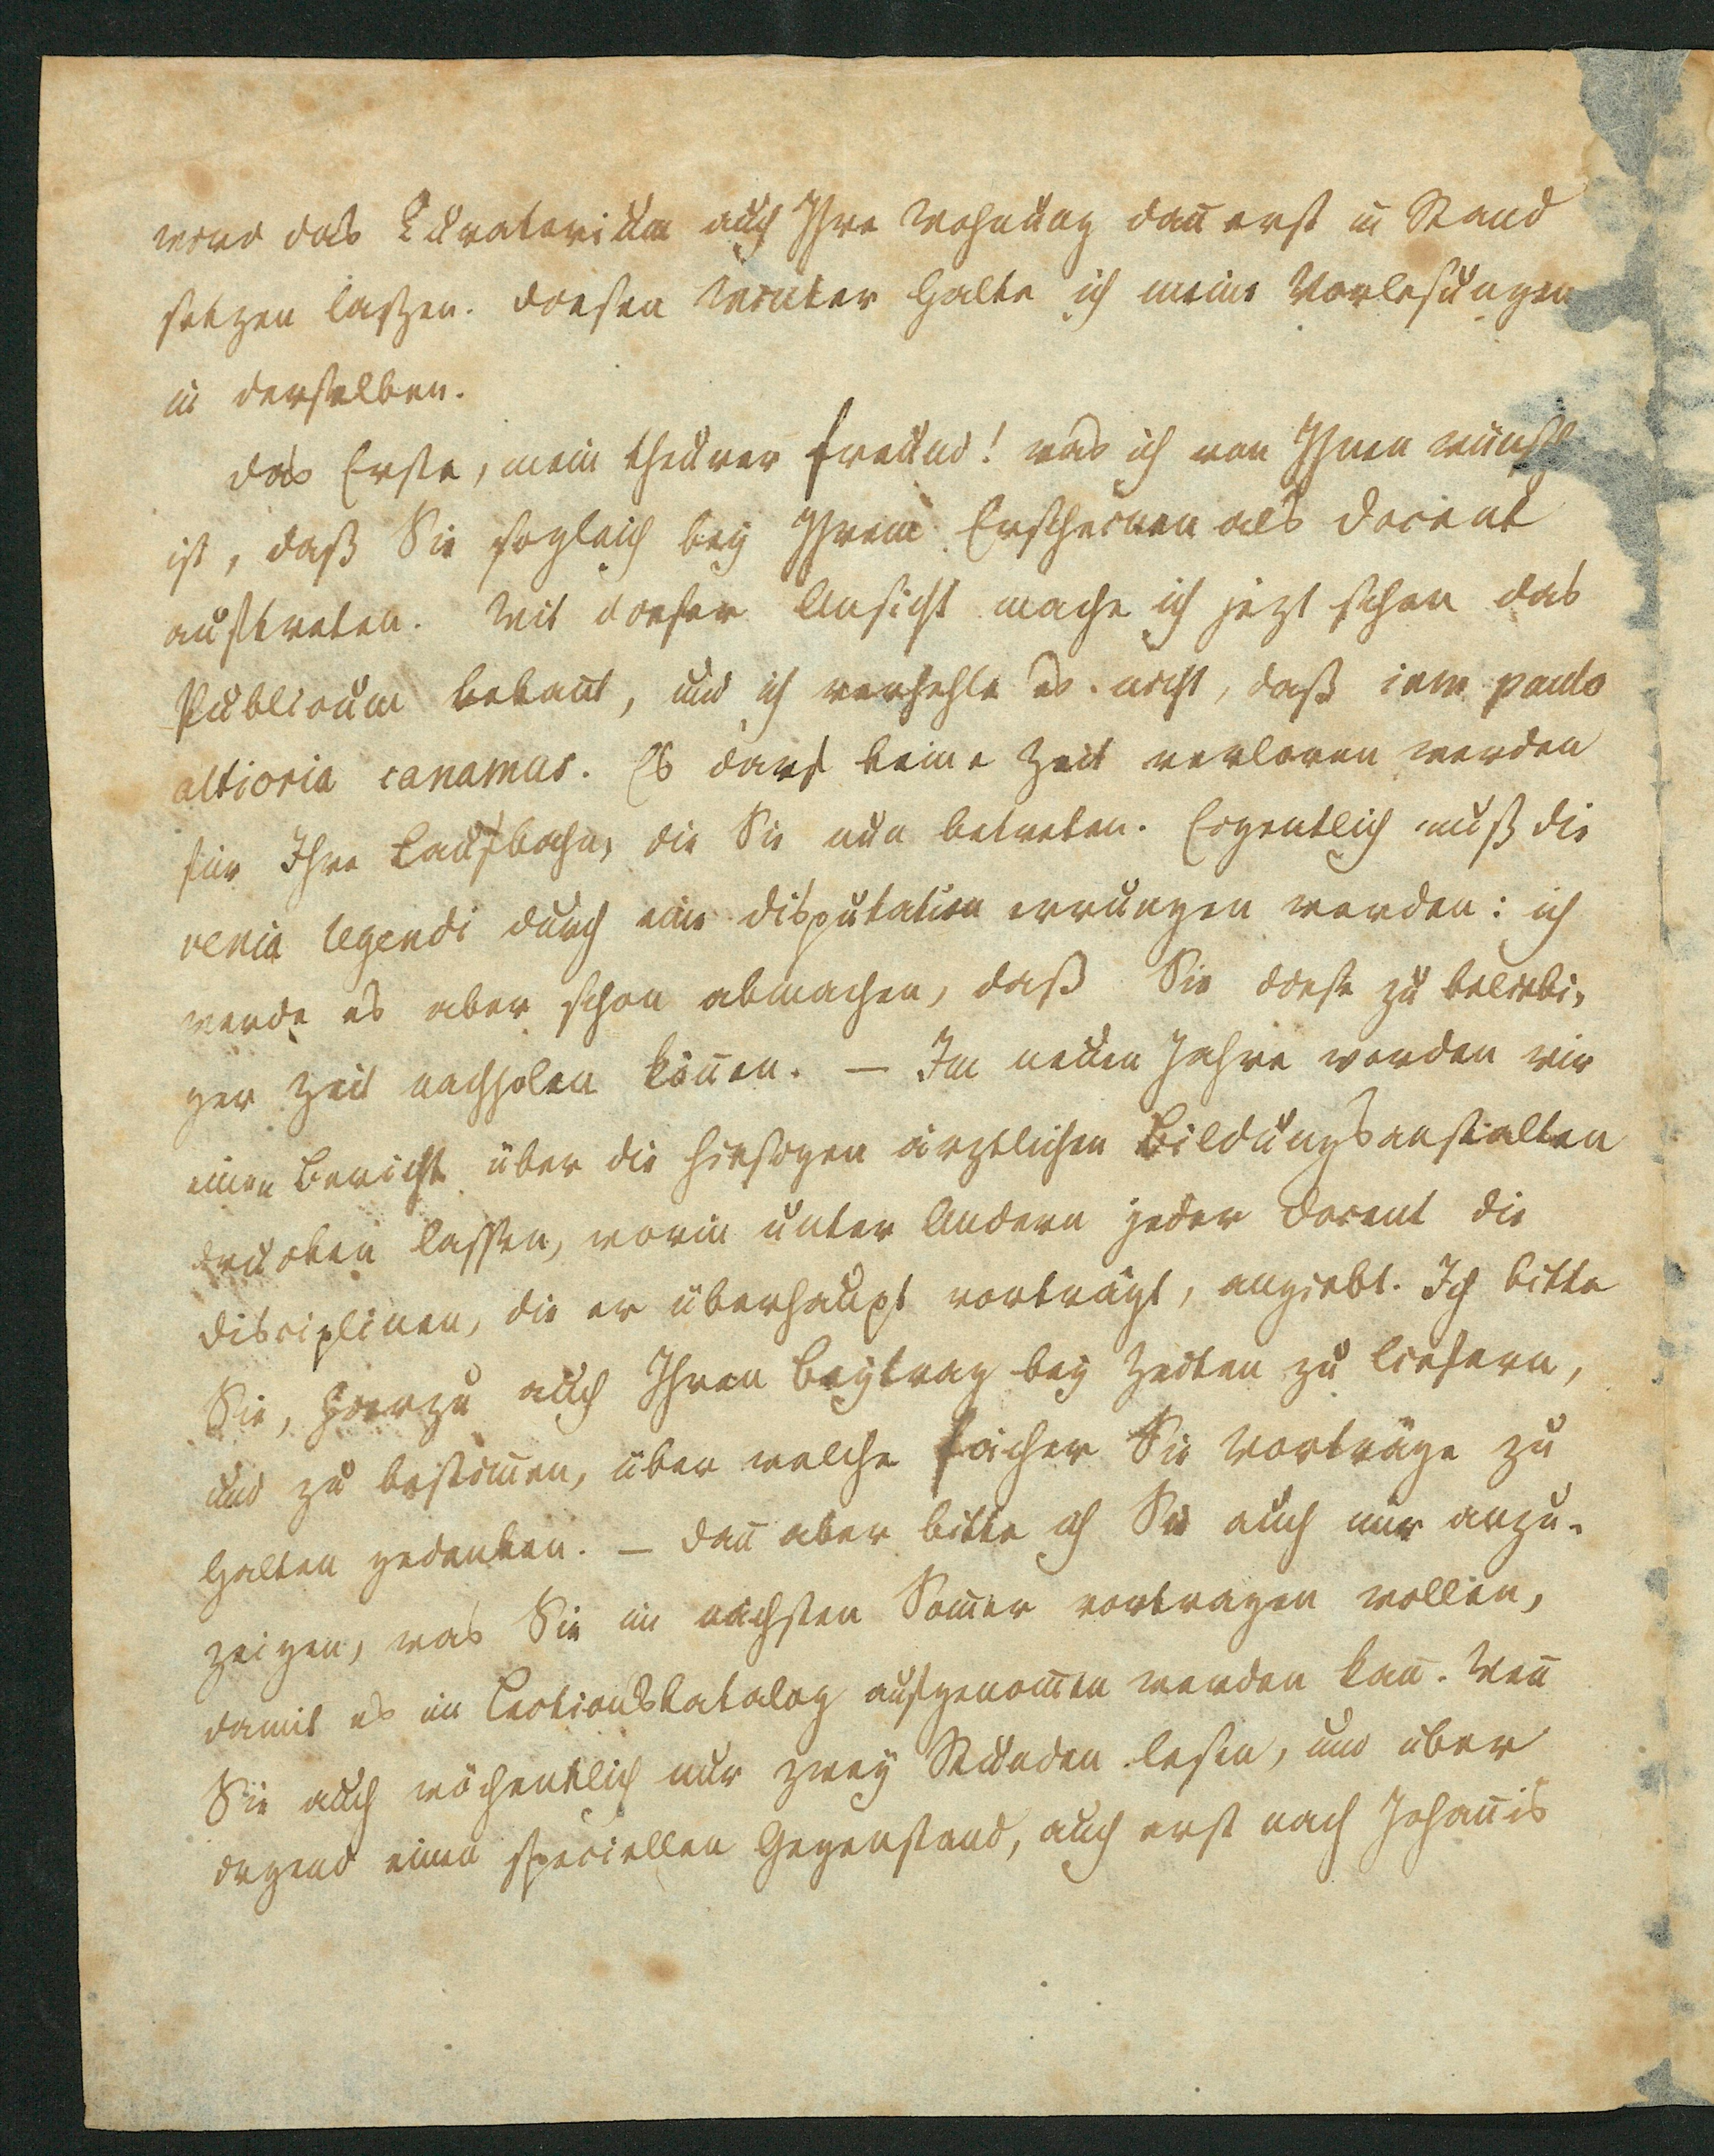 wird das Curatorium auch Ihre Wohnung dañ erst in Stand
setzen laßen. Diesen Winter halte ich meine Vorlesungen
in derselben.
Das Erste, mein theurer Freund! was ich von Ihnen wünsche
ist, daß Sie sogleich bey Ihrem Erscheinen als Docent
auftreten. Mit dieser Ansicht mache ich jezt schon das
Publicum bekañt, und ich verhehle es nicht, daß iam paulo
altiora canamus. Es darf keine Zeit verloren werden
für Ihre Laufbahn, die Sie nun betreten. Eigentlich muß die
venia legendi durch eine Disputation errungen werden: ich
werde es aber schon abmachen, daß Sie diese zu beliebi-
ger Zeit nachholen köñen. — Im neuen Jahre werden wir
einen Bericht über die hiesigen ärztlichen Bildungsanstalten
drucken lassen, worin unter Andern jeder Docent die
Disciplinen, die er überhaupt vorträgt, angiebt. Ich bitte
Sie, hierzu auch Ihren Beytrag bey Zeiten zu liefern,
und zu bestim̃en, über welche Fächer Sie Vorträge zu
halten gedenken. — Dañ aber bitte ich Sie auch mir anzu-
zeigen, was Sie im nächsten Som̃er vortragen wollen,
damit es im Lectionskatalog aufgenom̃en werden kañ. Weñ
Sie auch wöchentlich nur zwey Stunden lesen, und über
irgend einen speciellen Gegenstand, auch erst nach Johañis